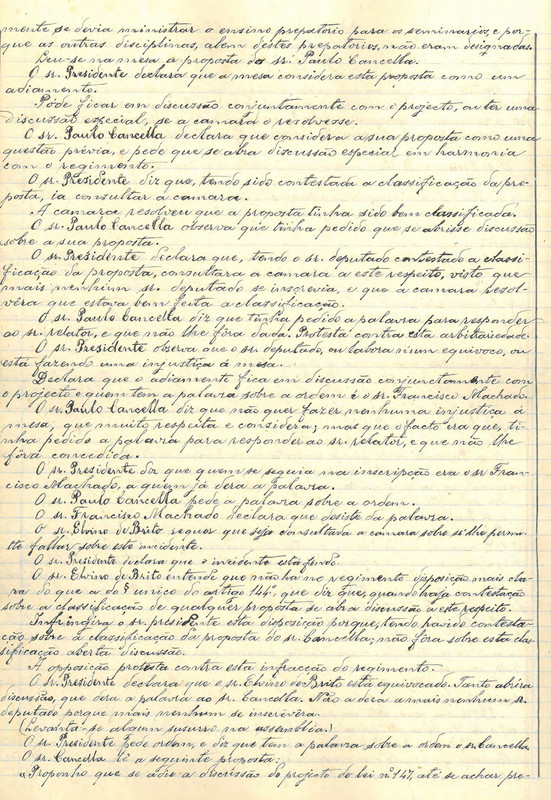 mente se devia ministrar o ensino prepatorio para os seminarios, e por-
que as outras disciplinas, alem destes prepatorios, não eram designadas.
Leu-se na mesa a proposta do sr. Paulo Cancella.
O sr. Presidente declara que a mesa considera esta proposta como um
adiamento.
Pode ficar em discussão conjuntamente com o projecto, ou ter uma
discussão especial, se a camara o resolvesse.
O sr. Paulo Cancella declara que considera a sua proposta como uma
questão prévia, e pede que se abra discussão especial em harmonia
com o regimento.
O sr. Presidente diz que, tendo sido contestada a classificação da pro-
posta, ia consultar a camara.
A camara resolveu que a proposta tinha sido bem classificada.
O sr. Paulo Cancella observa que tinha pedido que se abrisse discussão
sobre a sua proposta.
O sr. Presidente declara que, tendo o sr. deputado contestado a classi-
ficação da proposta, consultára a camara a este respeito, visto que
mais nenhum sr. deputado se inscrevia, e que a camara resol-
vêra que estava bem feita a classificação.
O sr. Paulo Cancella diz que tinha pedido a palavra para responder
ao sr. relator, e que não lhe fôra dada. Protesta contra esta arbitrariedade.
O sr. Presidente observa que o sr. deputado, ou labora n'um equivoco, ou
está fazendo uma injustiça á mesa.
Declara que o adiamento fica em discussão conjunctamente com
o projecto e quem tem a palavra sobre a ordem é o sr. Francisco Machado.
O sr. Paulo Cancella diz que não quer fazer nenhuma injustiça á
mesa, que muito respeita e considera; mas que o facto era que, ti-
nha pedido a palavra para responder ao sr. relator, e que não lhe
fôra concedida.
O sr. Presidente diz que quem se seguia na inscripção era o sr Fran-
cisco Machado, a quem já dera a palavra.
O sr. Paulo Cancella pede a palavra sobre a ordem.
O sr. Francisco Machado declara que desiste da palavra.
O sr. Elvino de Brito requer que seja consultada a camara sobre si lhe permi-
tte fallar sobre este incidente.
O sr. Presidente declara que o incidente está findo.
O sr. Elvino de Brito entende que não ha no regimento disposição mais cla-
ra do que a do § unico do artigo 144º, que diz que, quando haja contestação
sobre a classificação de qualquer proposta se abra discussão a este respeito.
Infringira o sr. presidente esta disposição porque, tendo havido contesta-
ção sobre a classificação da proposta do sr. Cancella, não fôra sobre esta clas-
sificação aberta discussão.
A opposição protesta contra esta infracção do regimento.
O sr. Presidente declara que o sr. Elvino de Brito está equivocado. Tanto abríra
discussão, que dera a palavra ao sr. Cancella. Não a dera a mais nenhum sr.
deputado porque mais nenhum se inscrevêra.
(Levanta-se algum susurro na assembléa.)
O sr. Presidente pede ordem, e diz que tem a palavra sobre a ordem o sr. Cancella.
O sr. Cancella lê a seguinte proposta:
«Proponho que se adie a discussão do projecto de lei nº 147, até se achar pre-